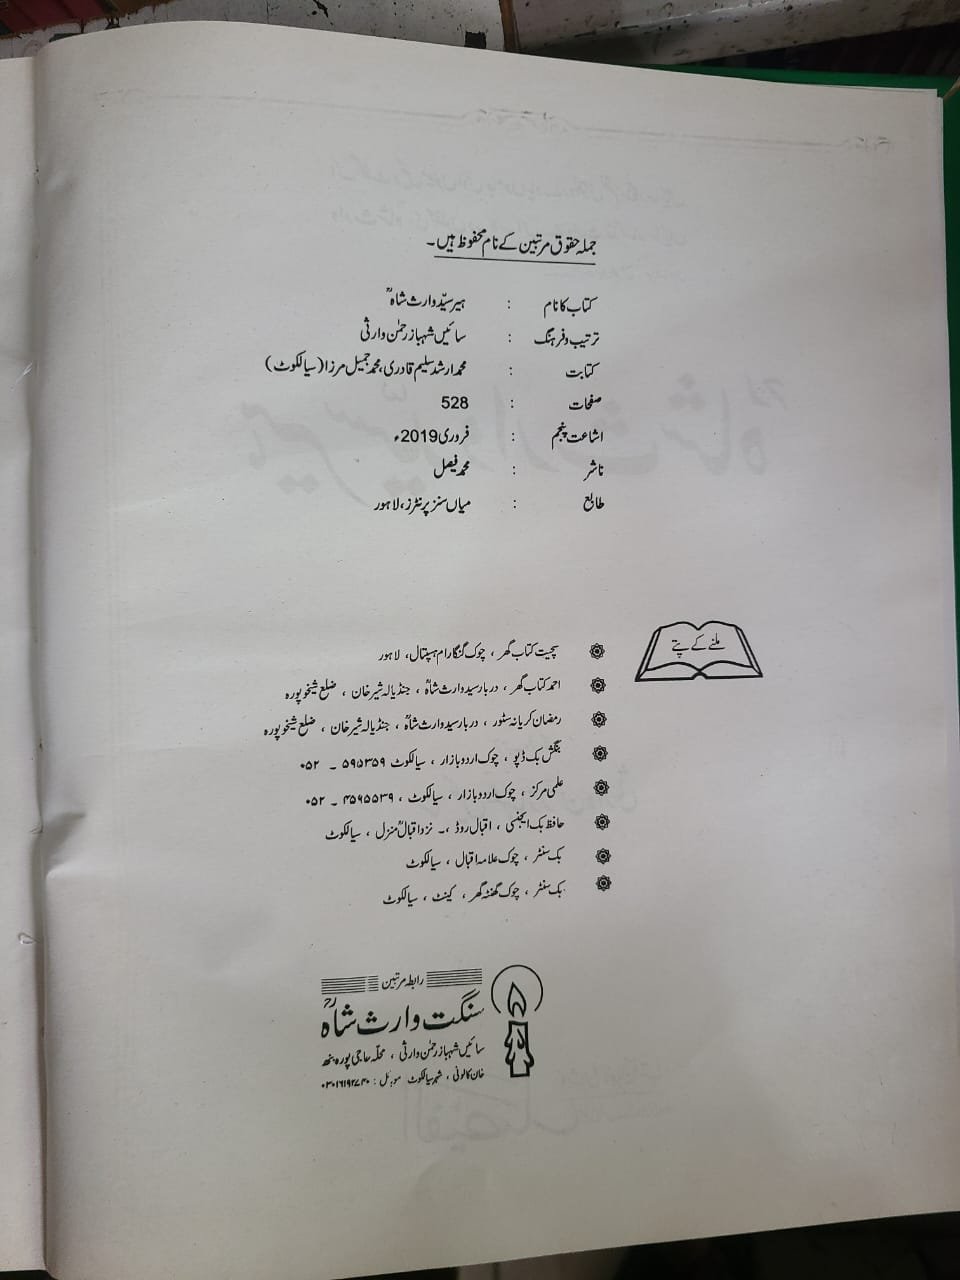 جملہ حقوق مرتبین کے نام محفوظ ہیں۔
کتاب کا نام : ہیر سیّد وارث شاہؒ
ترتیب و فرہنگ : سائیں شہباز رحمٰن وارثی
کتابت : محمد ارشد سلیم قادری، محمد جمیل مرزا (سیالکوٹ)
صفحات : 528
اشاعت پنجم : فروری 2019ء
ناشر : محمد فیصل
طابع : میاں سنز پرنٹرز، لاہور
ملنے کے پتے
سچیت کتاب گھر ، چوک گنگارام ہسپتال، لاہور
احمد کتاب گھر ، دربار سید وارث شاہؒ ، جنڈیالہ شیر خان ، ضلع شیخوپورہ
رمضان کریانہ سٹور ، دربار سید وارث شاہؒ ، جنڈیالہ شیر خان ، ضلع شیخوپورہ
بنگش بک ڈپو ، چوک اردو بازار ، سیالکوٹ ۵۹۵۳۵۹ ۔ ۰۵۲
علمی مرکز ، چوک اردو بازار ، سیالکوٹ ، ۴۵۶۵۵۳۹ ۔ ۰۵۲
حافظ بک ایجنسی ، اقبال روڈ ،۔ نزد اقبالؒ منزل ، سیالکوٹ
بک سنٹر ، چوک علامہ اقبال ، سیالکوٹ
بک سنٹر ، چوک گھنٹہ گھر ، کینٹ ، سیالکوٹ
رابطہ مرتبین
سنگت وارث شاہؒ
سائیں شہباز رحمٰن وارثی ، محلّہ حاجی پورہ بنھ
خان کالونی ، شہر سیالکوٹ موبائل : ۰۳۰۱۶۱۹۲۷۴۰